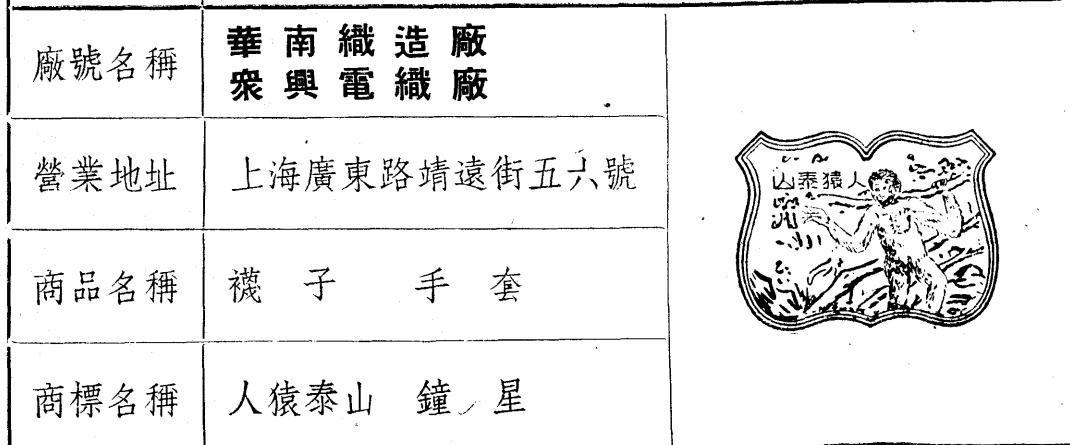 廠號名稱 華南織造廠
衆興電織廠
營業地址 上海廣東路靖遠街五六號
商品名稱 襪子 手套
商標名稱 人猿泰山 鐘星
山泰猿人